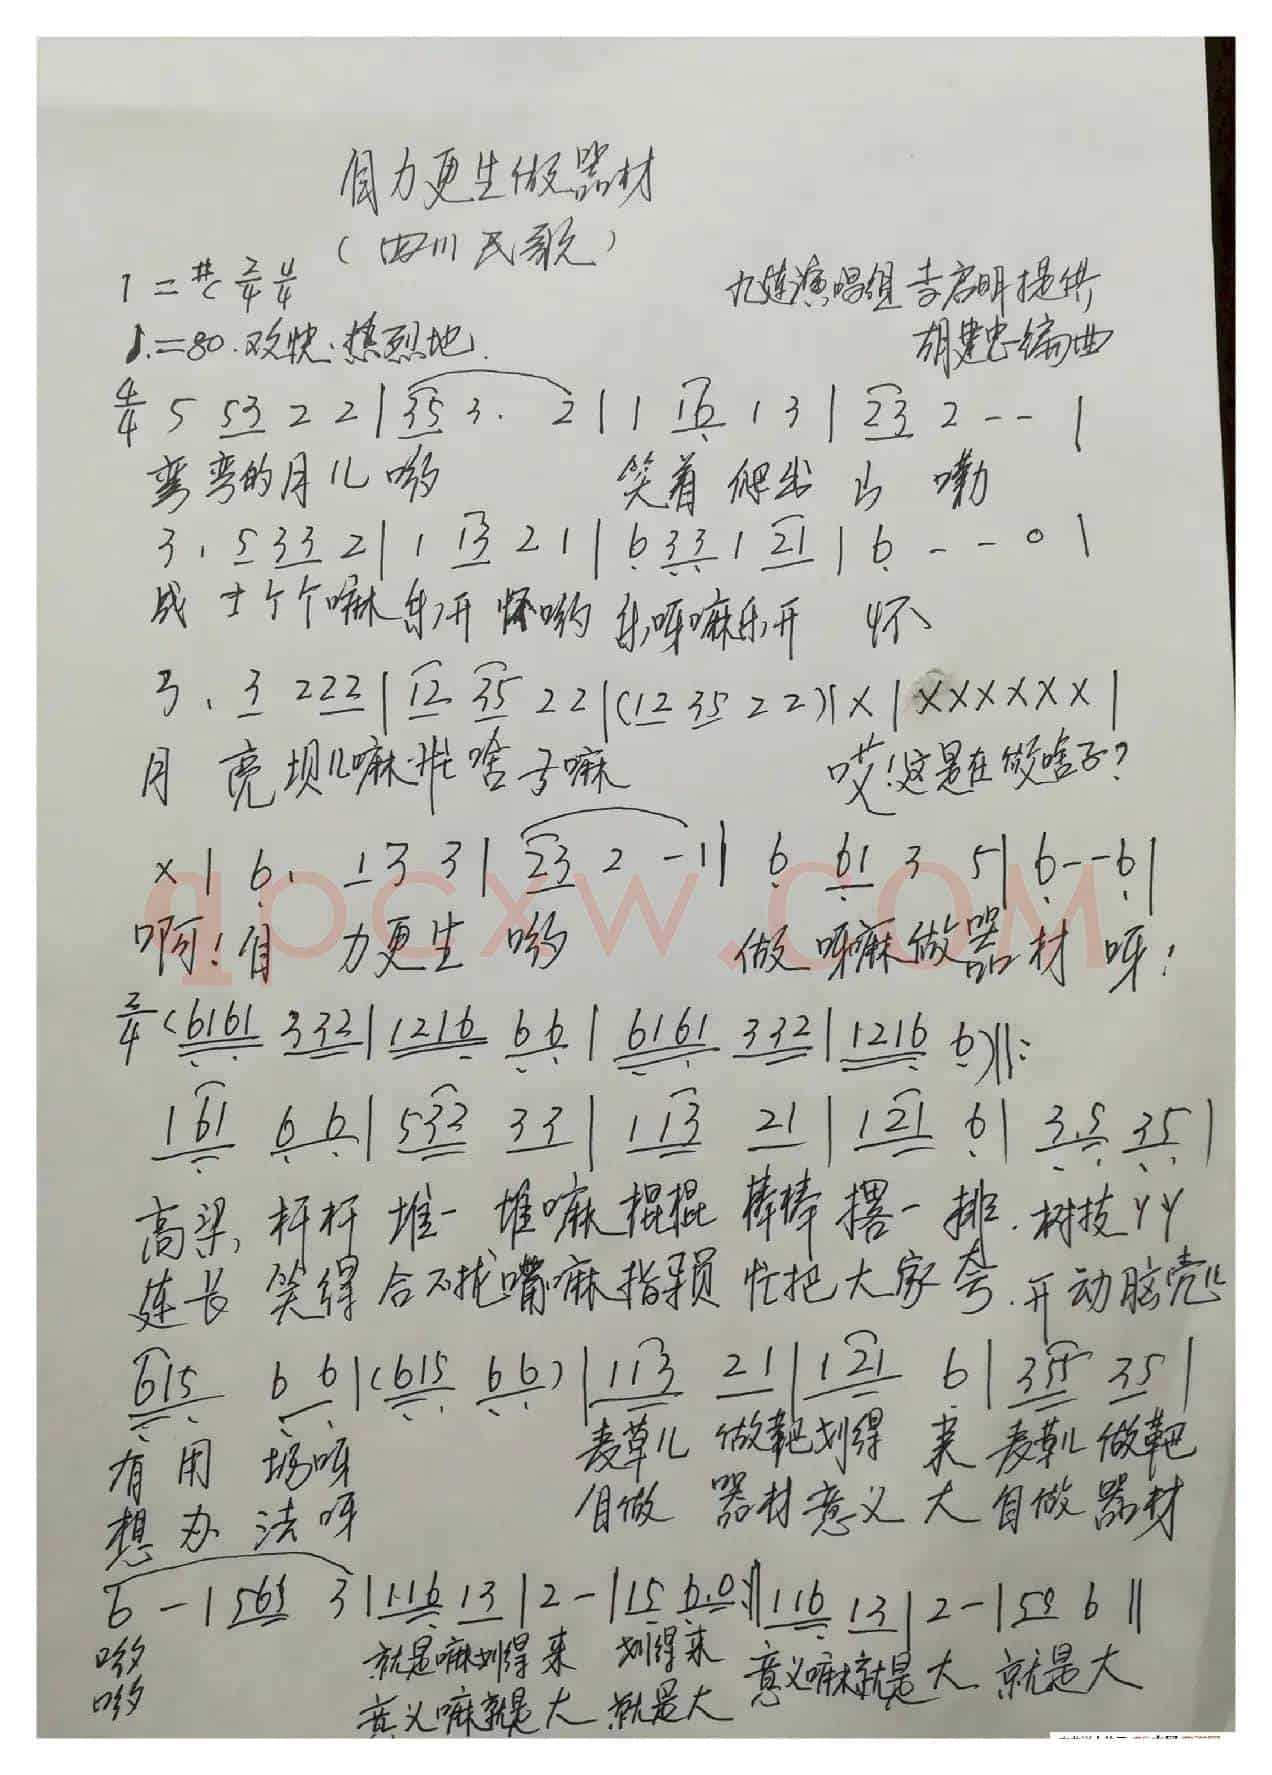 自力更生做器材
（四川民歌）
1=#C 2/4 4/4
九连演唱组李启明提供
♩.=80.欢快.热烈地.
胡建忠编曲
4/4 5 53 2 2 | 35 3. 2 | 1 16 1 3 | 23 2 - - |
弯弯的月儿哟 笑着爬出山嘞
3. 5 33 2 | 1 13 2 1 | 6 33 1 21 | 6 - - 0 |
战士个个嘛乐开怀哟乐呀嘛乐开怀
3. 3 2 22 | 12 35 2 2 | (12 35 2 2) | X | X X X X X X |
月亮坝儿嘛忙啥子嘛 哎!这是在做啥子?
X | 6. 1 3 3 | 23 2 - 1 || 6 61 3 5 | 6 - - 6 |
啊!自力更生哟 做呀嘛做器材呀!
2/4 (6161 332 | 1216 66 | 6161 332 | 1216 6) ||:
1 61 66 | 532 33 | 113 21 | 121 6 | 3.5 35 |
高粱,杆杆堆一堆嘛棍棍棒棒撂一排.树技丫丫
连长笑得合不拢嘴嘛指导员忙把大家夸.开动脑壳儿
615 66 | (615 66) | 113 21 | 121 6 | 355 35 |
有用场呀 麦草儿做靶划得来麦草儿做靶
想办法呀 自做器材意义大自做器材
6 - | 563 3 | 116 13 | 2 - | 15 6.0 :|| 116 13 | 2 - | 59 6 ||
哟 就是嘛划得来 划得来 意义嘛就是大 就是大
哟 意义嘛就是大 就是大
qpcxw.com